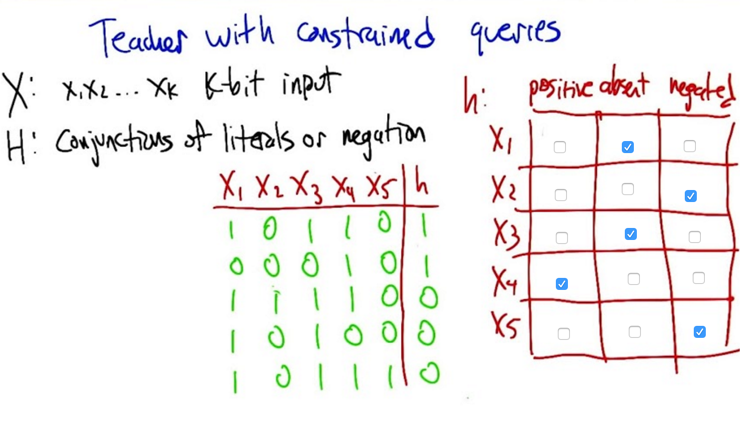 Teacher with constrained queries
X: x₁x₂... xₖ k-bit input
H: Conjunctions of literals or negation
X₁ X₂ X₃ X₄ X₅ | h
1 0 1 1 0 1
0 0 0 1 0 1
1 1 1 1 0 0
1 0 1 0 0 0
1 0 1 1 1 0
h: positive absent negated
X₁
X₂
X₃
X₄
X₅